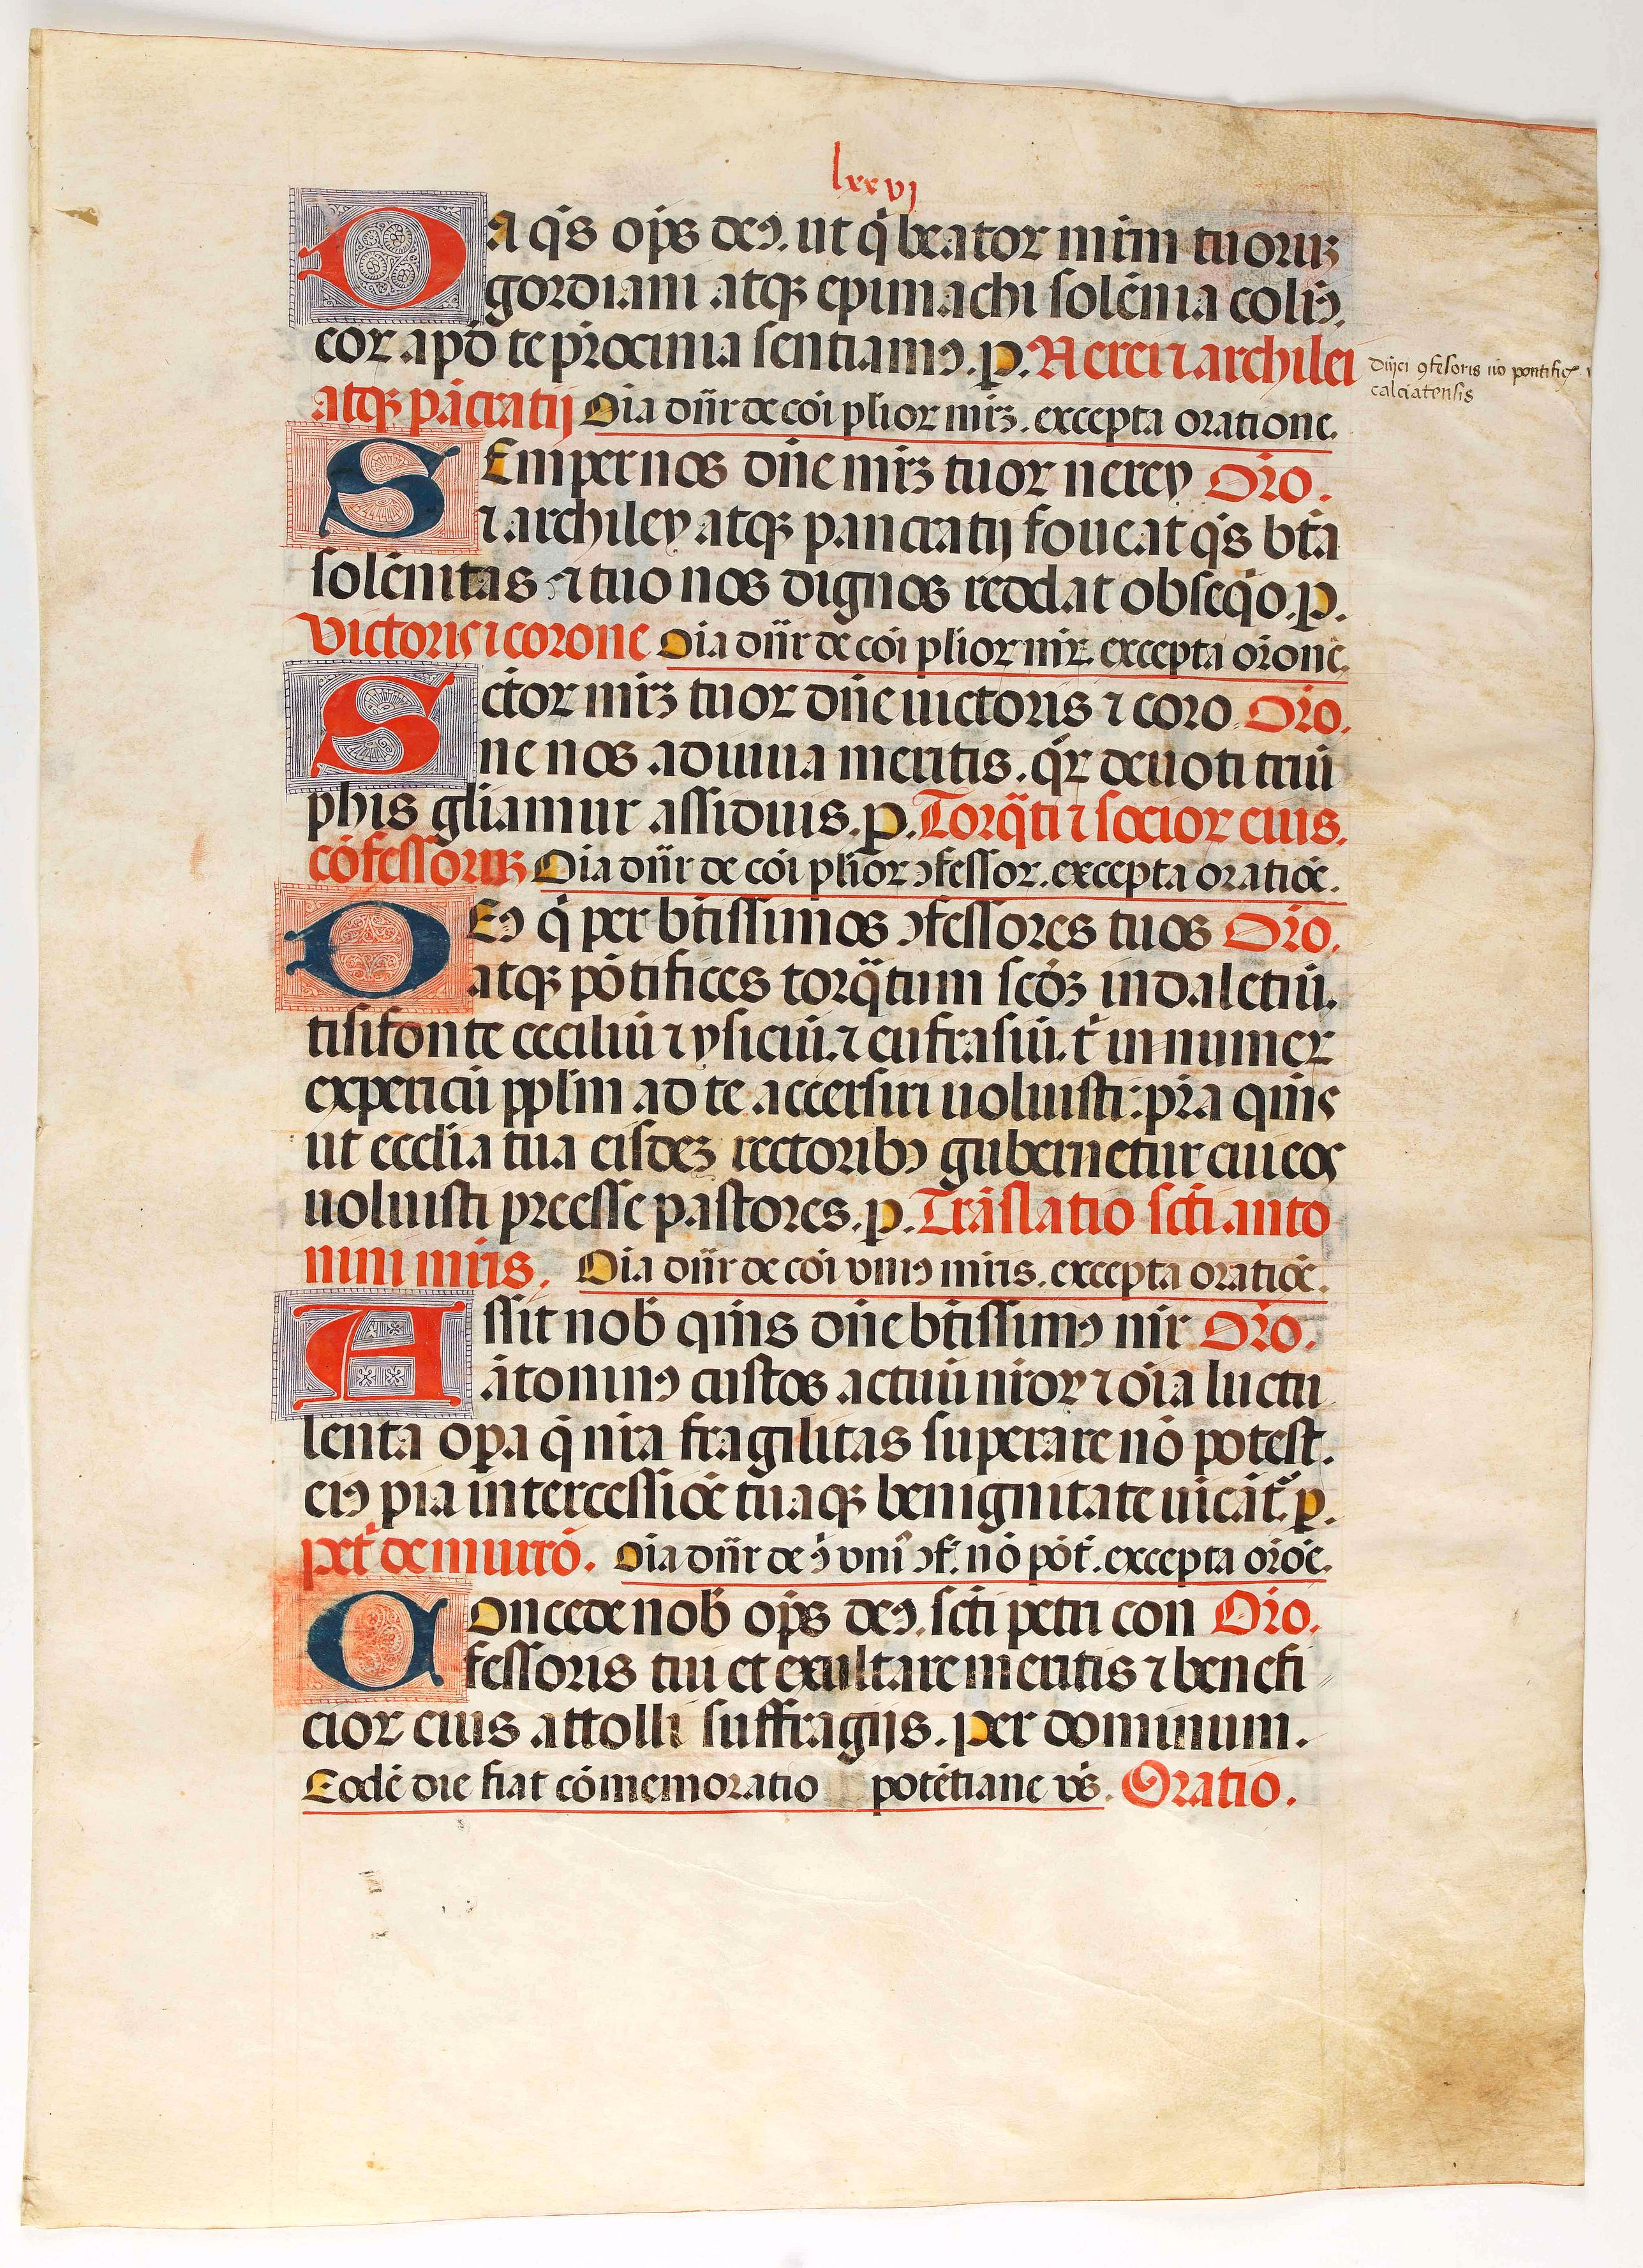 lxxvj
Da q̄s op̄s deꝰ. ut q̇ beatoꝝ mr̄m tuoruꝫ
gordiani atqꝫ epimachi solēnia colim̄ꝰ.
eoꝝ apđ te p̄rocinia sentiamꝰ. p. Nerei ⁊ archilei
atqꝫ pācratij Oīa dn̄r de cōi plīoꝝ mr̄ꝫ. excepta oratione.
Semper nos dn̄e mr̄ꝫ tuoꝝ nerey Oro.
⁊ archiley atqꝫ pancratij foueat q̄s bt̄a
solēnitas ⁊ tuo nos dignos reddat obseq̇o. p.
Victoris ⁊ corone Oīa dn̄r de cōi plīoꝝ mr̄ꝝ. excepta orōne.
Sctōꝝ mr̄ꝫ tuoꝝ dn̄e uictoris ⁊ coro Oro.
ne nos adiuua meritis. q̇ꝝ deuoti triū
phis glīamur assiduis. p. Torq̄ti ⁊ socioꝝ eius.
cōfessoruꝫ Oīa dn̄r de cōi plīoꝝ ↄfessoꝝ. excepta oratiōe.
Deꝰ q̇ per btīssimos ↄfessores tuos Oro.
atqꝫ pōtifices torq̄tum scđꝫ indaletiū.
tisifonte ceciliū ⁊ ysiciū. ⁊ eufrasiū. t̄ innumeꝝ
expericiū pplm̄ ad te accersiri uoluisti: pr̄a qm̄s
ut ecclīa tua eisdeꝫ rectoribꝰ gubernetur cui eos
uoluisti preesse pastores. p. Trāslatio scti anto
nini mr̄is. Oīa dn̄r de cōi vniꝰ mr̄is. excepta oratiōe.
Assit nob̄ qm̄s dn̄e btīssimꝰ mr̄ Oro.
ātoninꝰ custos actuū nr̄oꝝ ⁊ oīa luctu
lenta oꝑa q̇ nr̄a fragilitas superare nō potest.
eiꝰ pia intercessiōe tuaqꝫ benignitate uicāt̄. p.
pet̄ de murrō. Oīa dn̄r de ꝯ̇ vnī ↄf. nō pōt̄. excepta orōe.
Concede nob̄ op̄s deꝰ. scti petri con Oro.
fessoris tui et exultare meritis ⁊ benefi
cioꝝ eius attolli suffragijs. per dominum.
Eodē die fiat cōmemoratio potētiane v̄s. Oratio.
Dn̄ici ꝯfesoris nō pontificꝭ
calciatensis